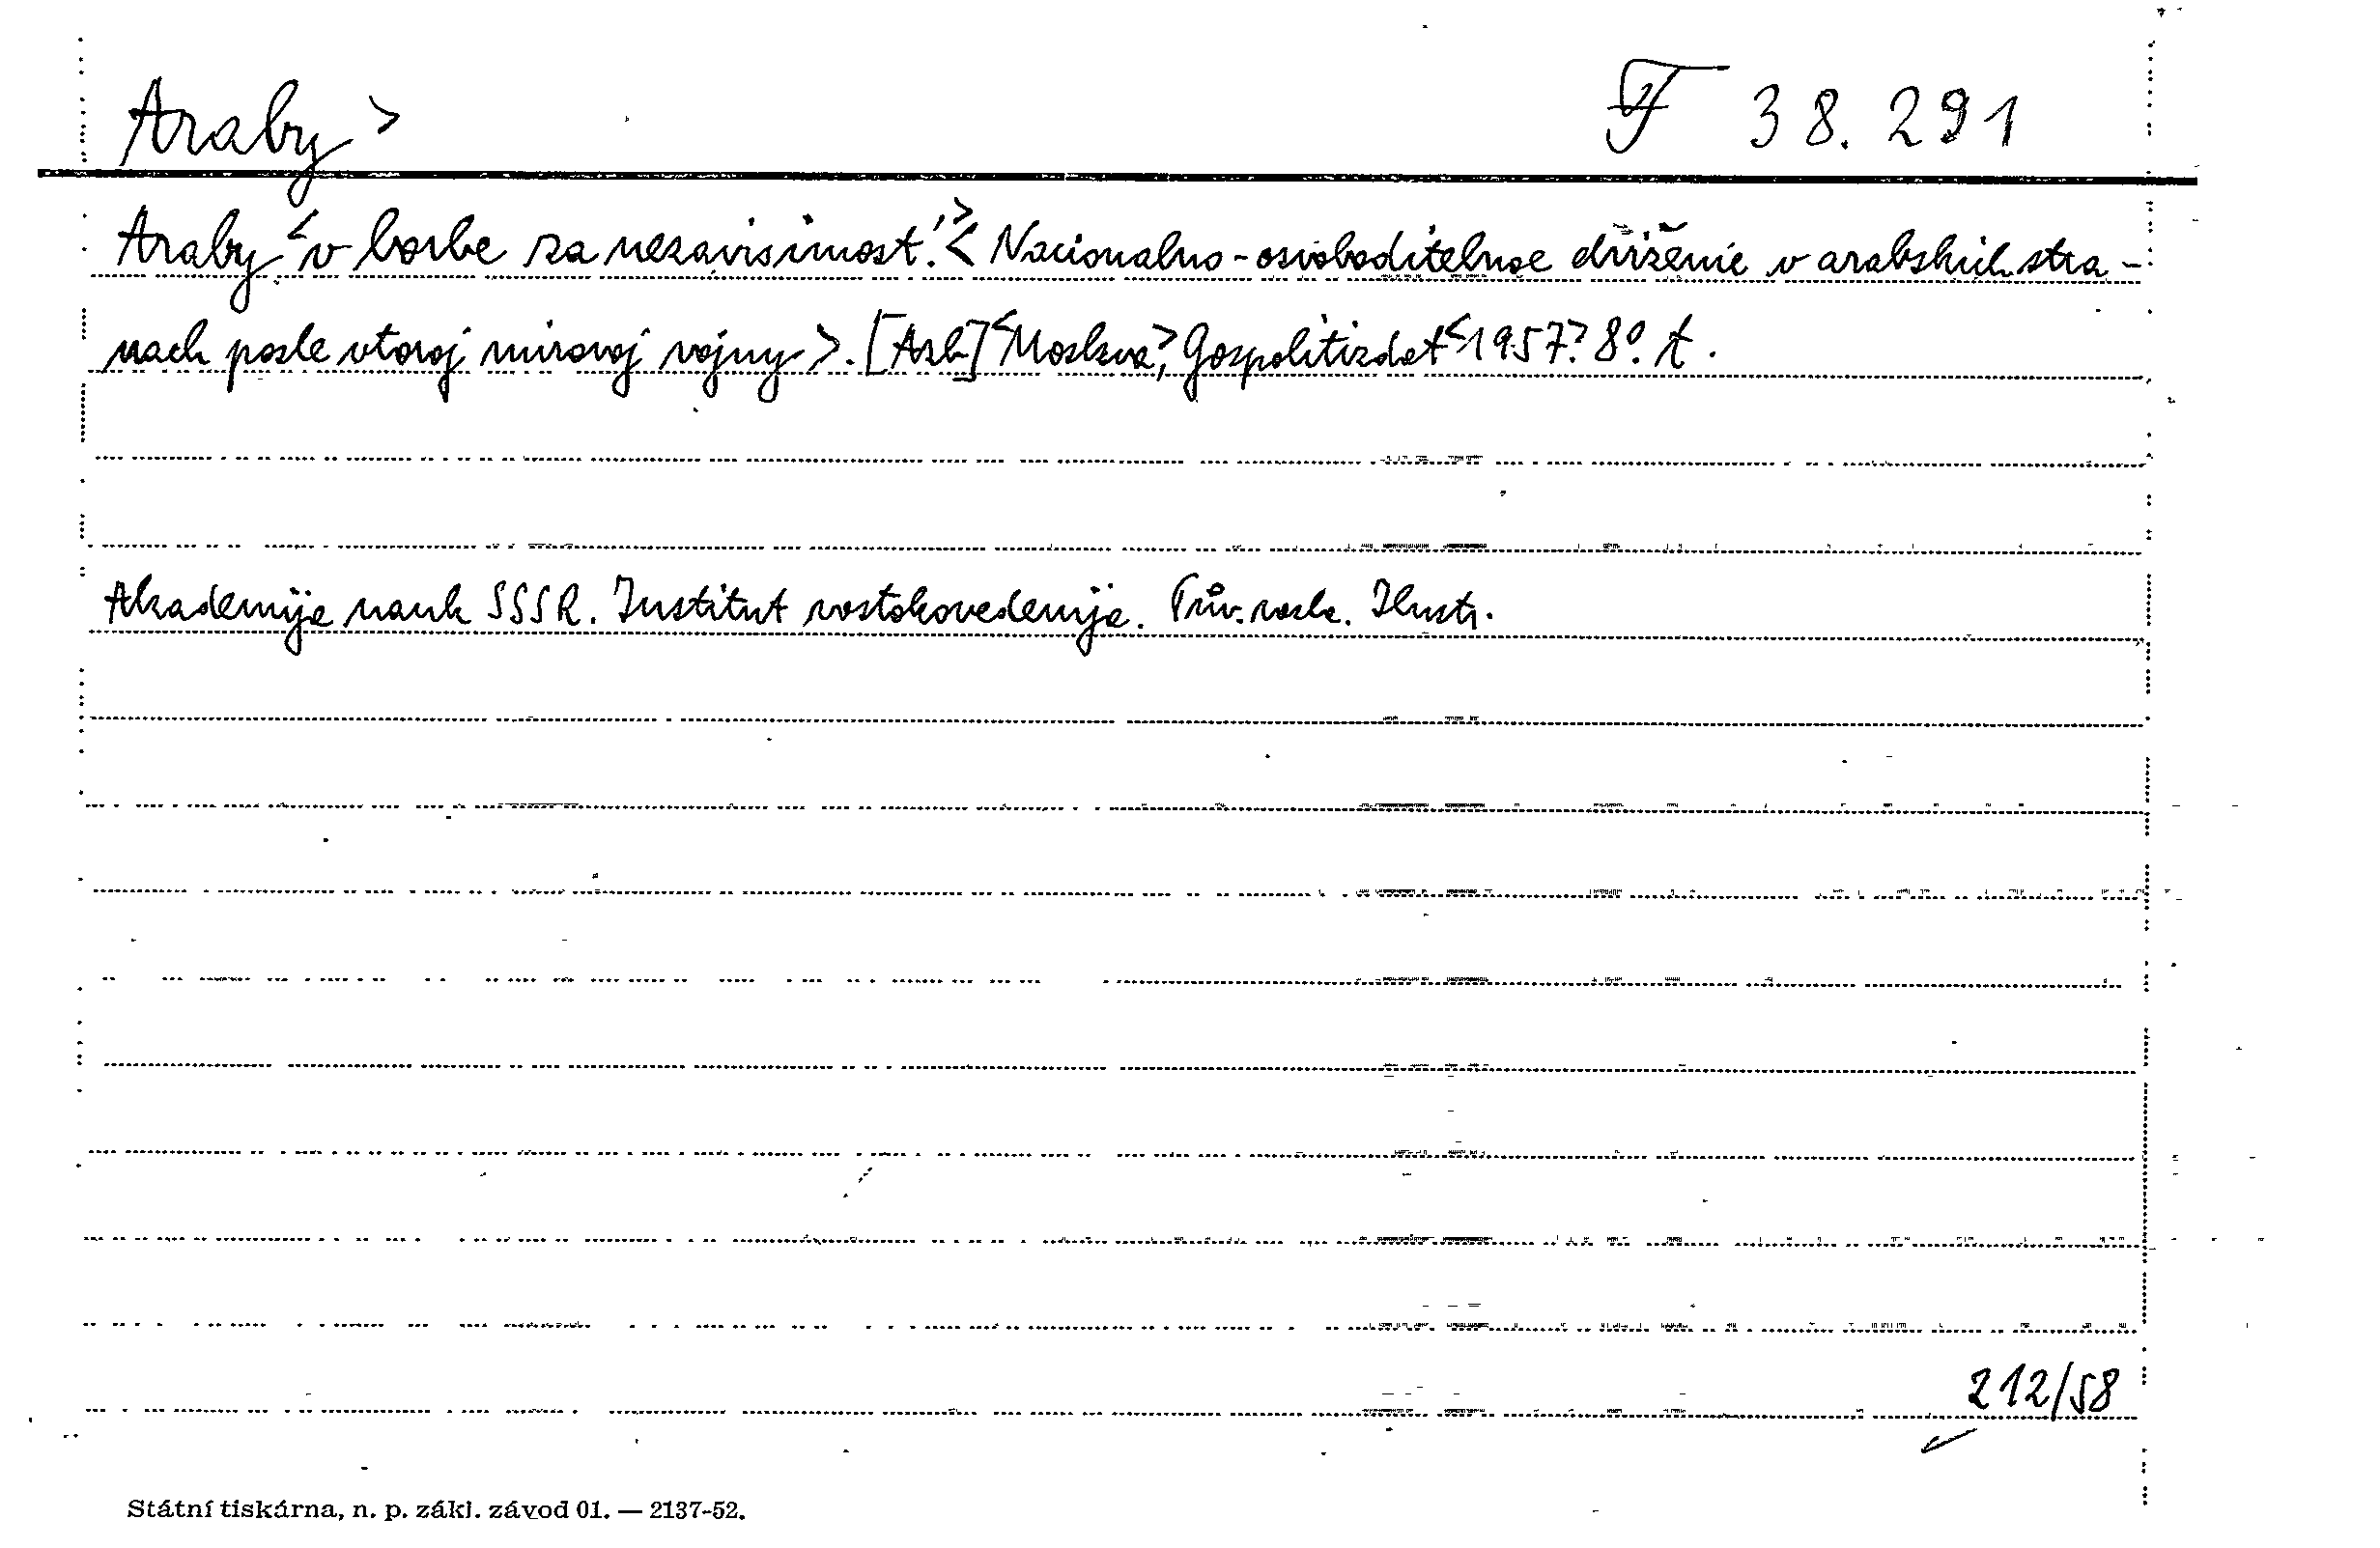 Araby > F 38.291
Araby < v borbe za nezavisimost'. > < Nacionalno-osvoboditelnoe dviženie v arabskich stra-
nach posle vtoroj mirovoj vojny >. [Azb.] < Moskva >, Gospolitizdat < 1957 >. 8°. t.
Akademija nauk SSSR. Institut vostokovedenija. Prův. vazba. Ilustr.
212/58
Státní tiskárna, n. p. zákl. závod 01. — 2137-52.